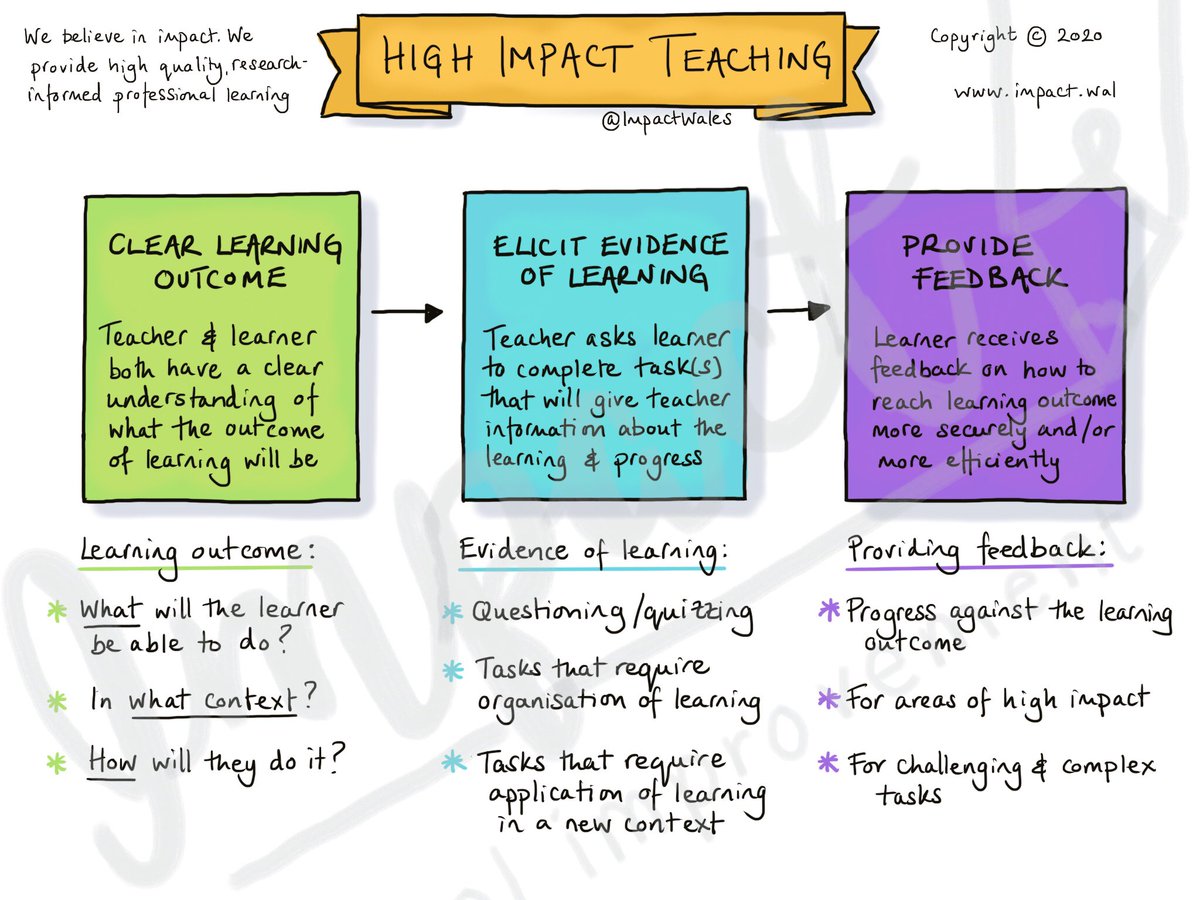 We believe in impact. We
provide high quality, research-
informed professional learning
HIGH IMPACT TEACHING
@ImpactWales
Copyright © 2020
www.impact.wal
CLEAR LEARNING
OUTCOME
Teacher & learner
both have a clear
understanding of
what the outcome
of learning will be
ELICIT EVIDENCE
OF LEARNING
Teacher asks learner
to complete task(s)
that will give teacher
information about the
learning & progress
PROVIDE
FEEDBACK
Learner receives
feedback on how to
reach learning outcome
more securely and/or
more efficiently
Learning outcome:
* What will the learner
be able to do?
* In what context?
* How will they do it?
Evidence of learning:
* Questioning/quizzing
* Tasks that require
organisation of learning
* Tasks that require
application of learning
in a new context
Providing feedback:
* Progress against the learning
outcome
* For areas of high impact
* For challenging & complex
tasks